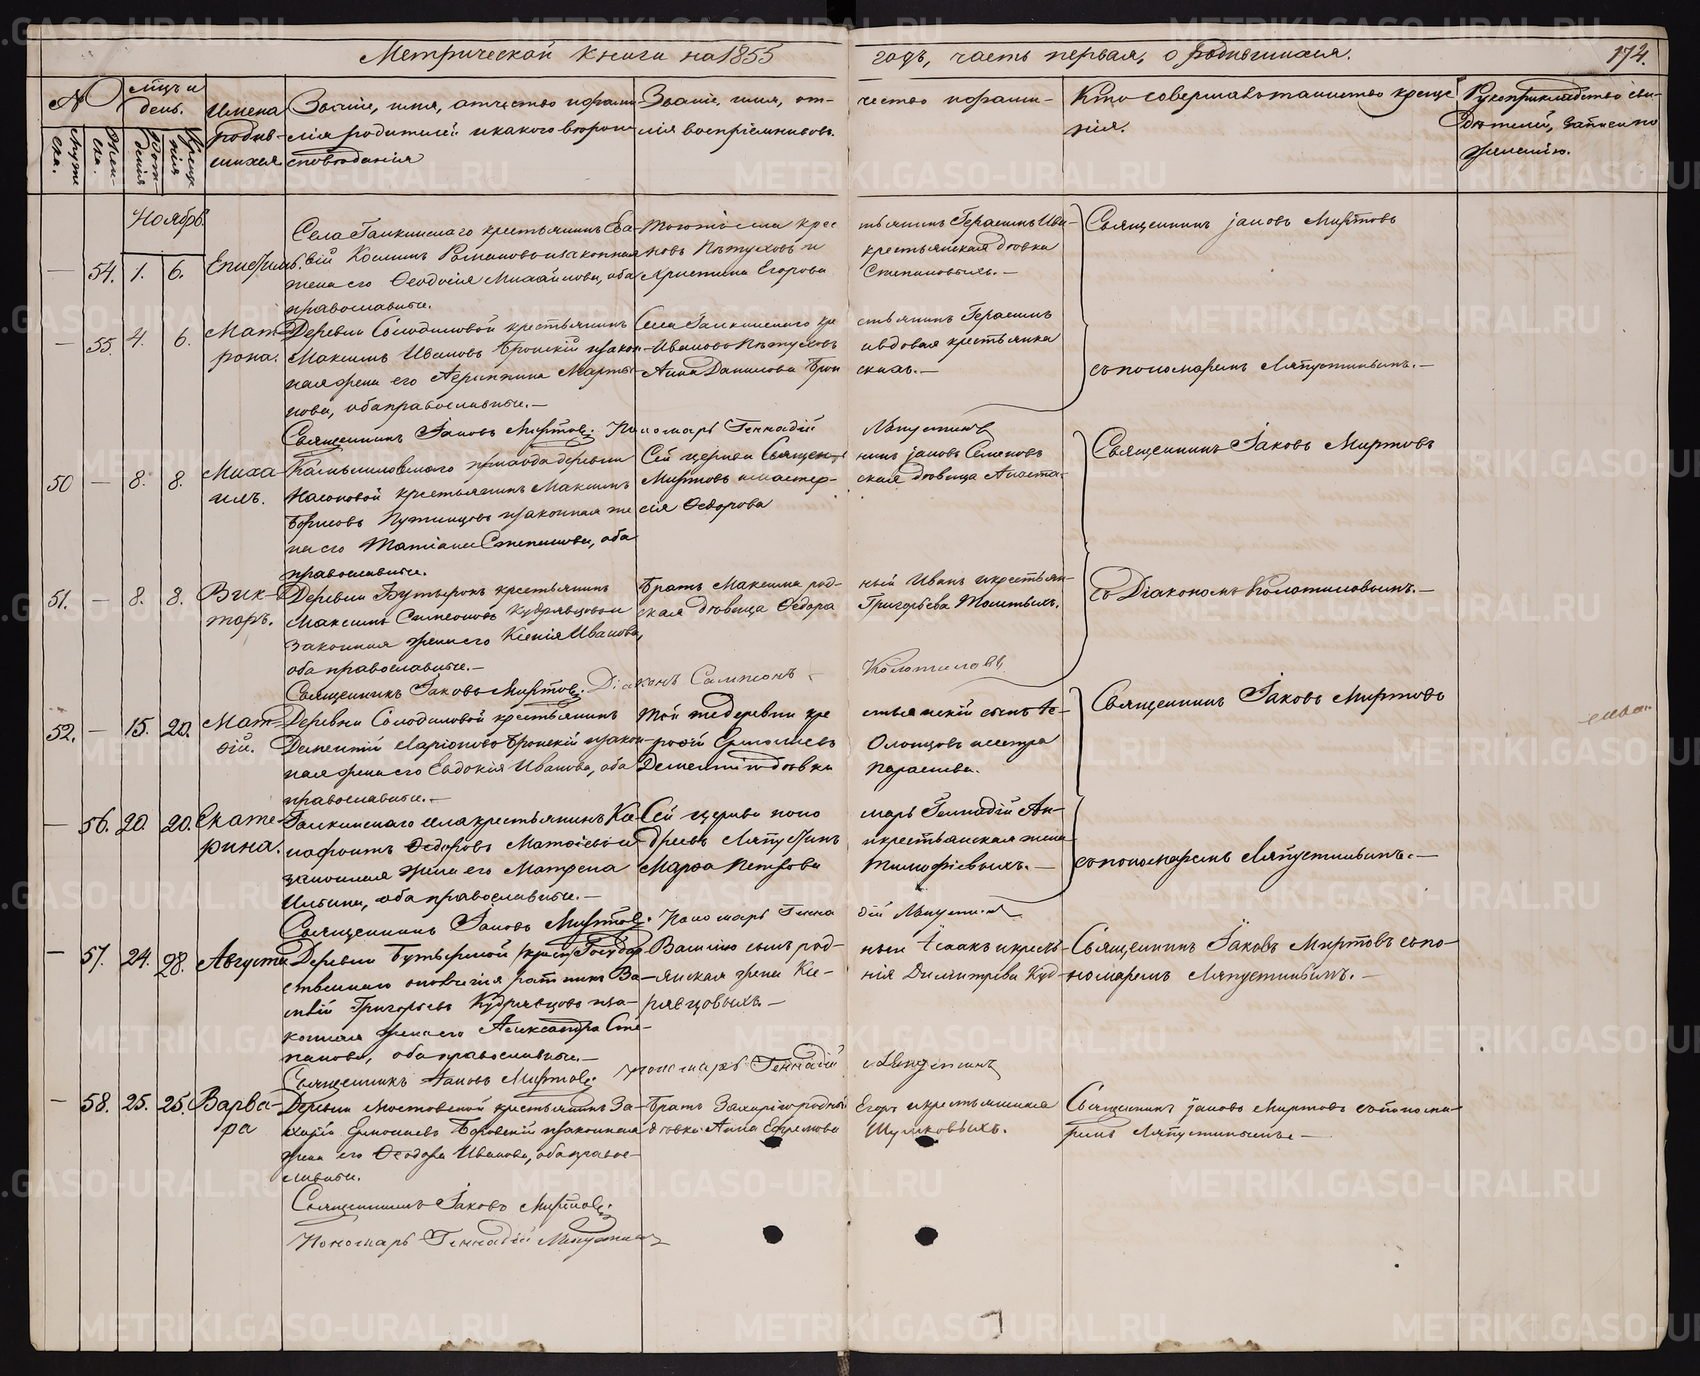 Метрической книги на 1855 годъ, часть первая, о родившихся. 174.
№
Мужеска.
Женска.
Мѣсяцъ и день.
Рожденія
Крещенія
Имена родившихся
Званіе, имя, отчество и фамилія родителей и какого вѣроисповѣданія
Званіе, имя, отчество и фамилія воспріемниковъ.
Кто совершалъ таинство крещенія.
Рукоприкладство свидѣтелей записи по желанію.
Ноябрь
— 54. 1. 6.
Села Галкинскаго крестьянинъ
Козьма Романовъ и законная
жена его Ѳеодосія Михайлова, оба
православные.
Того же села крестьянинъ Герасимъ Ивановъ Пѣтуховъ и крестьянская дѣвка
Христина Егорова Степановыхъ.—
Священникъ Іаковъ Миртовъ
— 55. 4. 6. Матрона.
Деревни Солодиловой крестьянинъ
Максимъ Ивановъ Бронскій и законная жена его Агрипина Мартынова, оба православные.—
Села Галкинскаго крестьянинъ Герасимъ
Ивановъ Пѣтуховъ и вдовая крестьянка
Анна Данилова Бронскихъ.—
съ пономаремъ Ляпустинымъ.—
Священникъ Іаковъ Миртовъ. Пономарь Геннадій Ляпустинъ
50 — 8. 8. Михаилъ.
Камышловскаго прихода деревни
Насоновой крестьянинъ Максимъ
Борисовъ и законная жена его Татіана Степанова, оба
православные.
Сей церкви Священникъ Іаковъ Семеновъ
Миртовъ и дѣвица Анастасія Ѳедорова
Священникъ Іаковъ Миртовъ
51. — 8. 8. Викторъ.
Деревни Бутырокъ крестьянинъ
Максимъ Симеоновъ Кудрявцовъ и
законная жена его Ксенія Иванова,
оба православные.—
Братъ Максима родный Иванъ и крестьянская дѣвица Ѳедора Григорьева
съ Діакономъ Колотиловымъ.—
Священникъ Іаковъ Миртовъ. Діаконъ Сампсонъ Колотиловъ
52. — 15. 20. Матѳій.
Деревни Солодиловой крестьянинъ
Дементій Ларіоновъ Бронскій и законная жена его Евдокія Иванова, оба
православные.—
Той же деревни крестьянскій сынъ
Ермолаевъ Олонцовъ и сестра
Дементія дѣвка Параскева.
Священникъ Іаковъ Миртовъ
— 56. 20. 20. Екатерина.
Галкинскаго села крестьянинъ
Ѳедоровъ Матѳіевъ и
законная жена его Матрена
Ильина, оба православные.—
Сей церкви пономарь Геннадій Андреевъ Ляпустинъ и крестьянская жена
Марѳа Петрова Тимофіевыхъ.—
съ пономаремъ Ляпустинымъ.—
Священникъ Іаковъ Миртовъ. Пономарь Геннадій Ляпустинъ
— 57. 24. 28. Августа
Деревни Бутырской Государственнаго ополченія ратникъ Василій Григорьевъ Кудрявцовъ и законная жена его Александра Степанова, оба православные.—
Василію сынъ родный Исаакъ и крестьянская жена Ксенія Димитріева Кудрявцовыхъ.—
Священникъ Іаковъ Миртовъ съ пономаремъ Ляпустинымъ.—
Священникъ Іаковъ Миртовъ. Пономарь Геннадій Ляпустинъ
— 58. 25. 25. Варвара
Деревни Мостовской крестьянинъ Захарій Ермолаевъ Боровскій и законная
жена его Ѳеодора Иванова, оба православные.
Братъ Захарію родный Егоръ и крестьянская
дѣвка Анна Ефремова Шумковыхъ.
Священникъ Іаковъ Миртовъ съ пономаремъ Ляпустинымъ—
Священникъ Іаковъ Миртовъ.
Пономарь Геннадій Ляпустинъ
METRIKI.GASO-URAL.RU